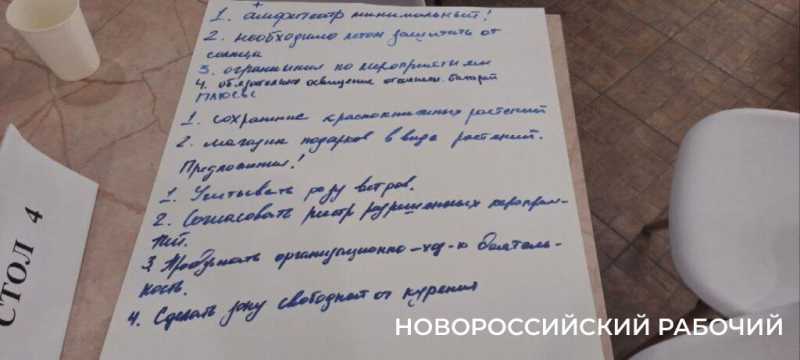 1. амфитеатр минимальный!
2. необходимо летом защитать от
солнца
3. ограничил по мероприятиям
4. обязательно освещение от солнечн. батарей
ПЛЮСЫ
1. сохранение краснокнижных растений
2. магазин подарков в виде растений.
Предложения!
1. Учитывать розу ветров.
2. Согласовать реестр разрешенных мероприя-
тий.
3. Продумать организационно-хоз-ю деятель-
ность.
4. Сделать зону свободной от курения
СТОЛ 4
НОВОРОССИЙСКИЙ РАБОЧИЙ